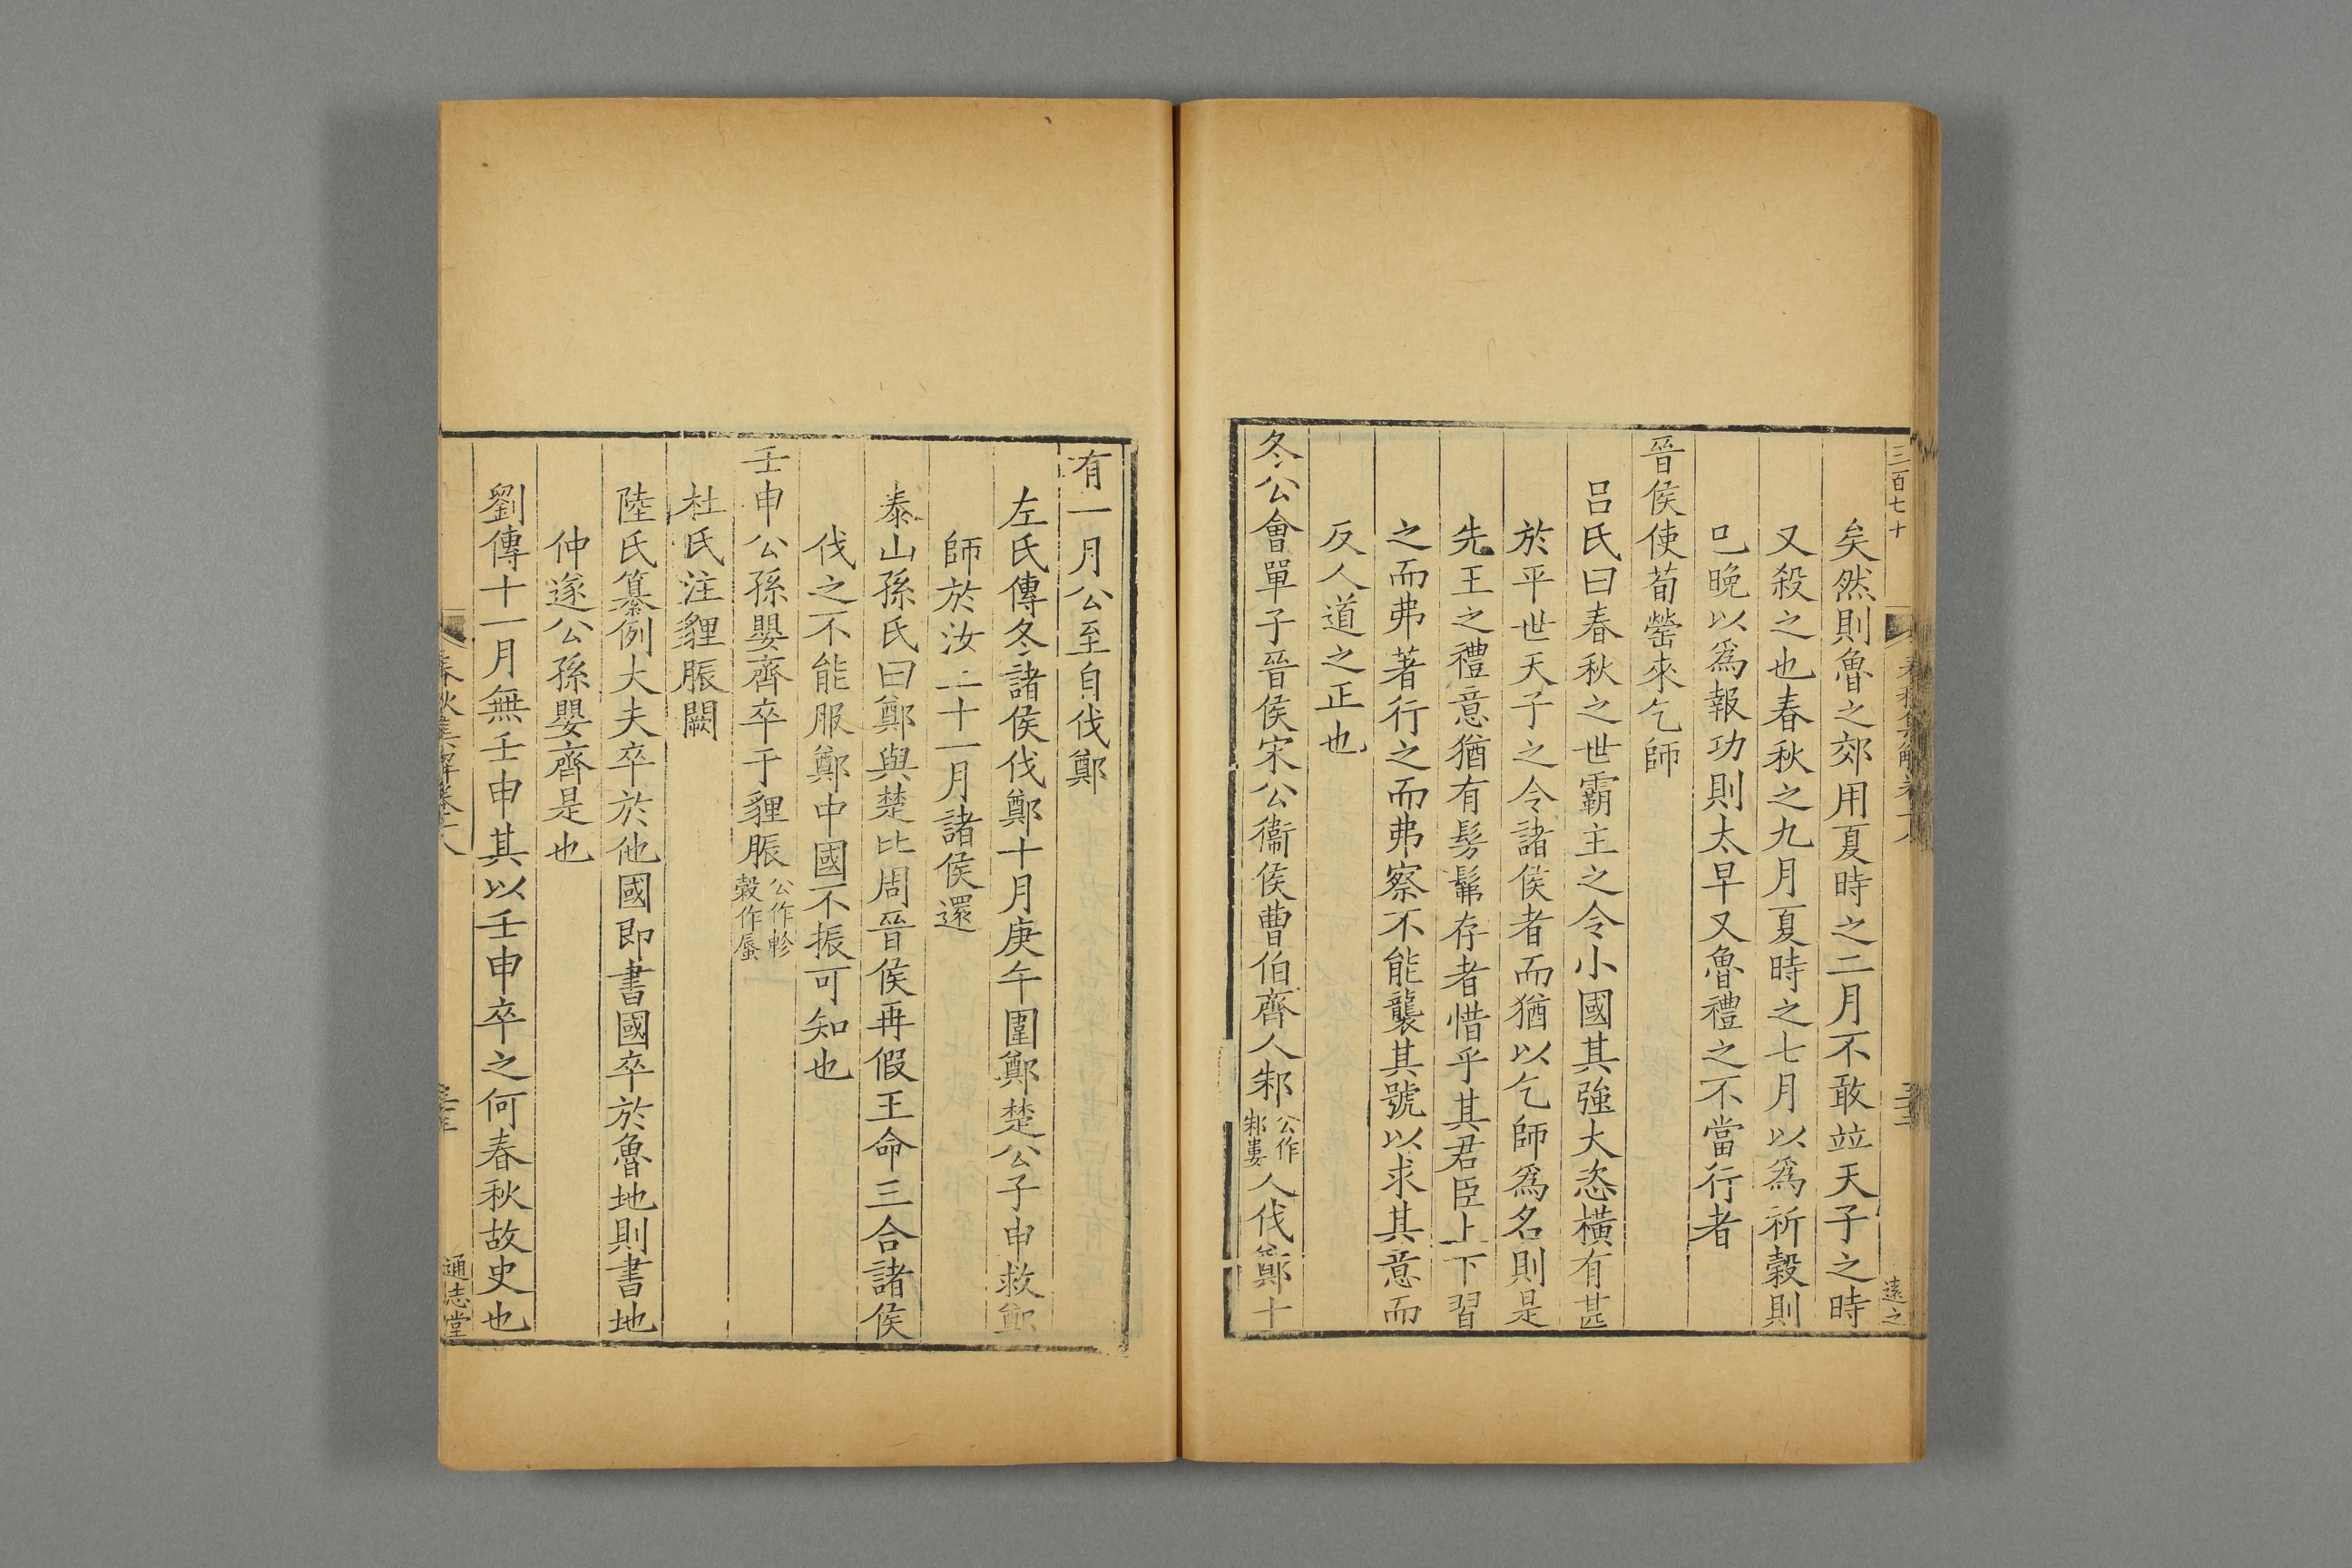 三百七十
遠之
矣然則魯之郊用夏時之二月不敢竝天子之時
又殺之也春秋之九月夏時之七月以爲祈穀則
已晚以爲報功則太早又魯禮之不當行者
晉侯使荀罃來乞師
呂氏曰春秋之世霸主之令小國其強大恣橫有甚
於平世天子之令諸侯者而猶以乞師爲名則是
先王之禮意猶有髣髴存者惜乎其君臣上下習
之而弗著行之而弗察不能襲其號以求其意而
反人道之正也
冬公會單子晉侯宋公衞侯曹伯齊人邾公作邾婁人伐鄭十
有一月公至自伐鄭
左氏傳冬諸侯伐鄭十月庚午圍鄭楚公子申救鄭
師於汝上十一月諸侯還
泰山孫氏曰鄭與楚比周晉侯再假王命三合諸侯
伐之不能服鄭中國不振可知也
壬申公孫嬰齊卒于貍脤公作軫穀作蜃
杜氏注貍脤闕
陸氏纂例大夫卒於他國即書國卒於魯地則書地
仲遂公孫嬰齊是也
劉傳十一月無壬申其以壬申卒之何春秋故史也
通志堂